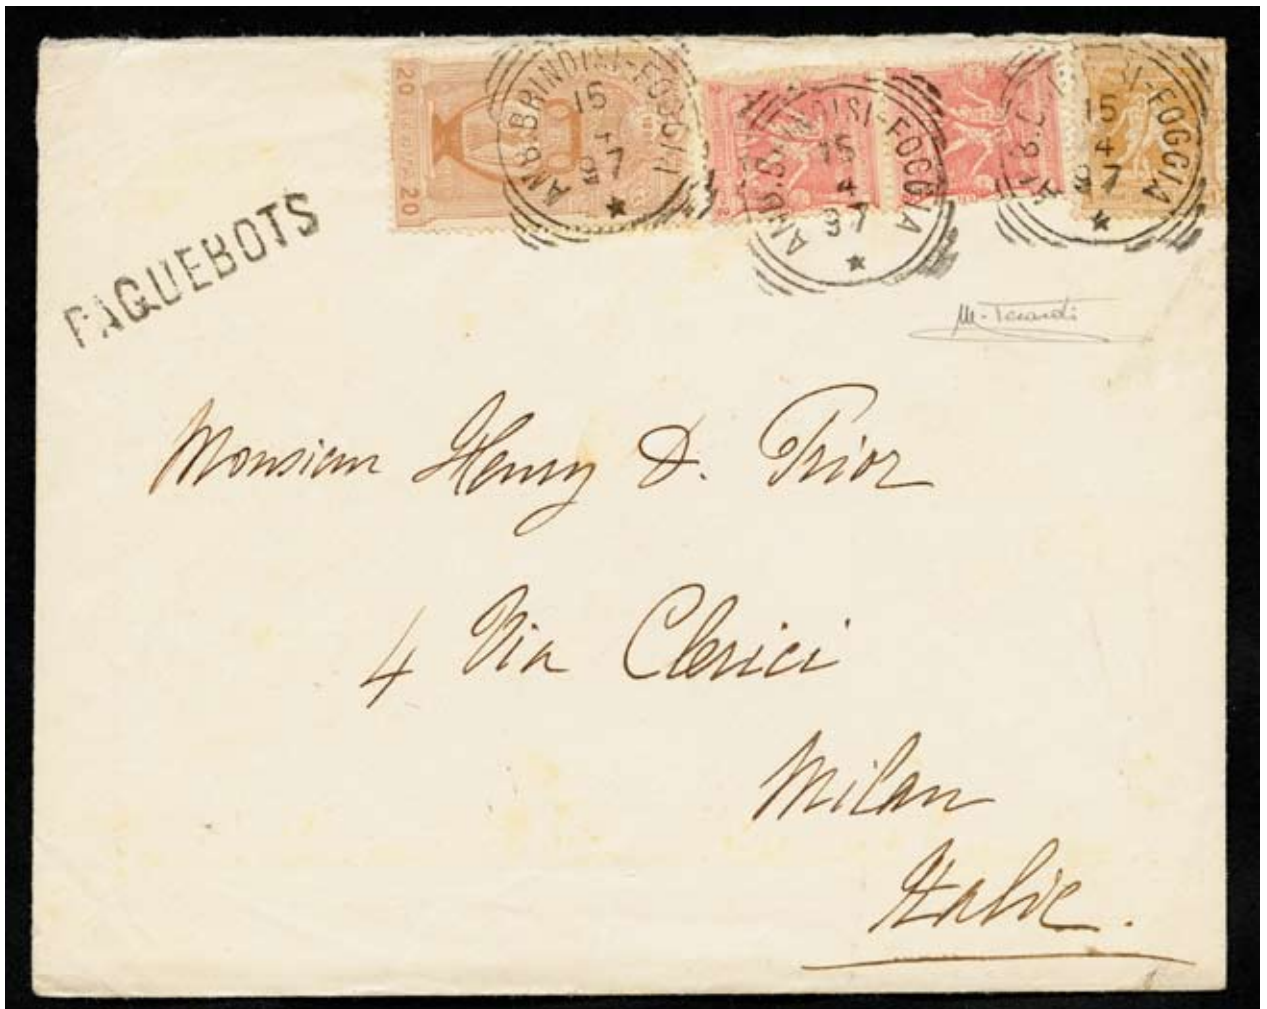 20
20
AMB. BRINDISI-FOGGIA
15
97
AMB. BRINDISI-FOGGIA
15
4
97
I-FOGGIA
15
4
97
PAQUEBOTS
Monsieur Henry D. Prior
4 Via Clerici
Milan
Italie.